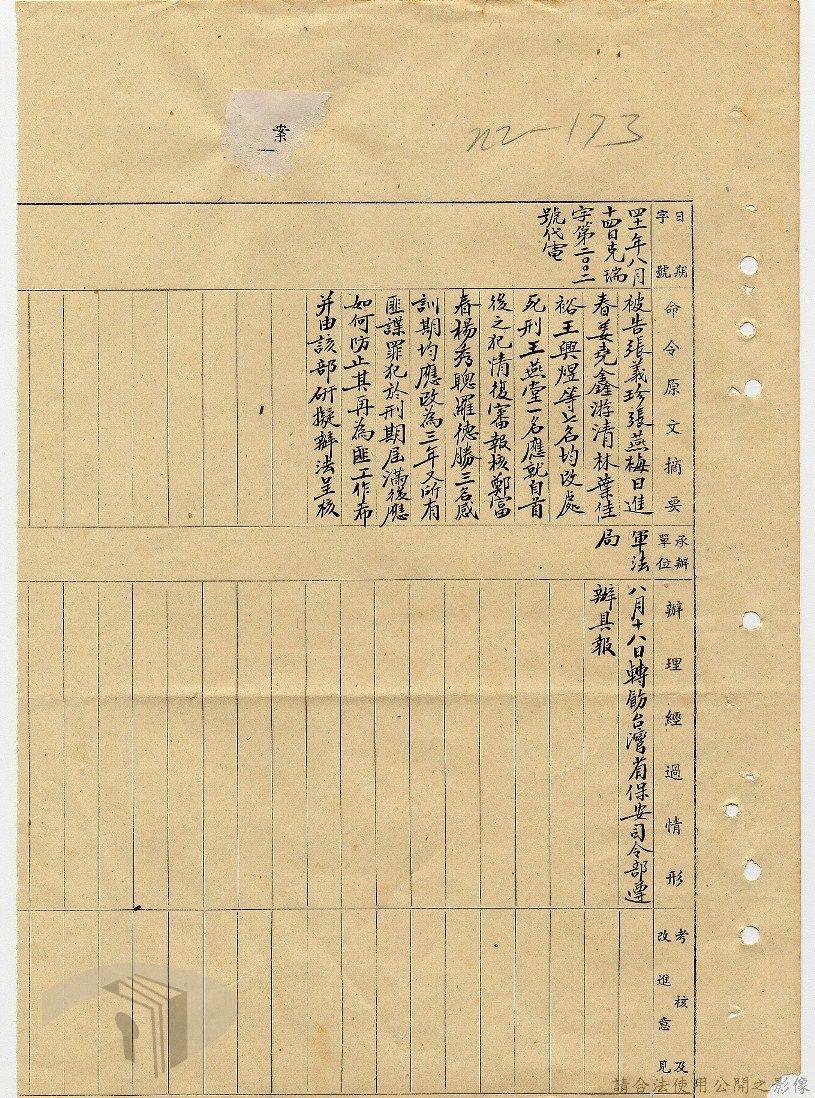 案
nz-173
日期
字號
四十一年八月
十四日克瑞
字第二〇〇二
號代電
命令原文摘要
被告張義珍張燕梅日進
春姜堯鑫游清林葉佳
裕王興煜等七名均改處
死刑王燕堂一名應就自首
後之犯情復審報核鄭富
春楊秀聰羅德勝三名感
訓期均應改為三年又所有
匪諜罪犯於刑期屆滿後應
如何防止其再為匪工作希
并由該部研擬辦法呈核
承辦
單位
軍法
局
辦理經過情形
八月十八日轉飭台灣省保安司令部遵
辦具報
考核及
改進意見
請合法使用公開之影像